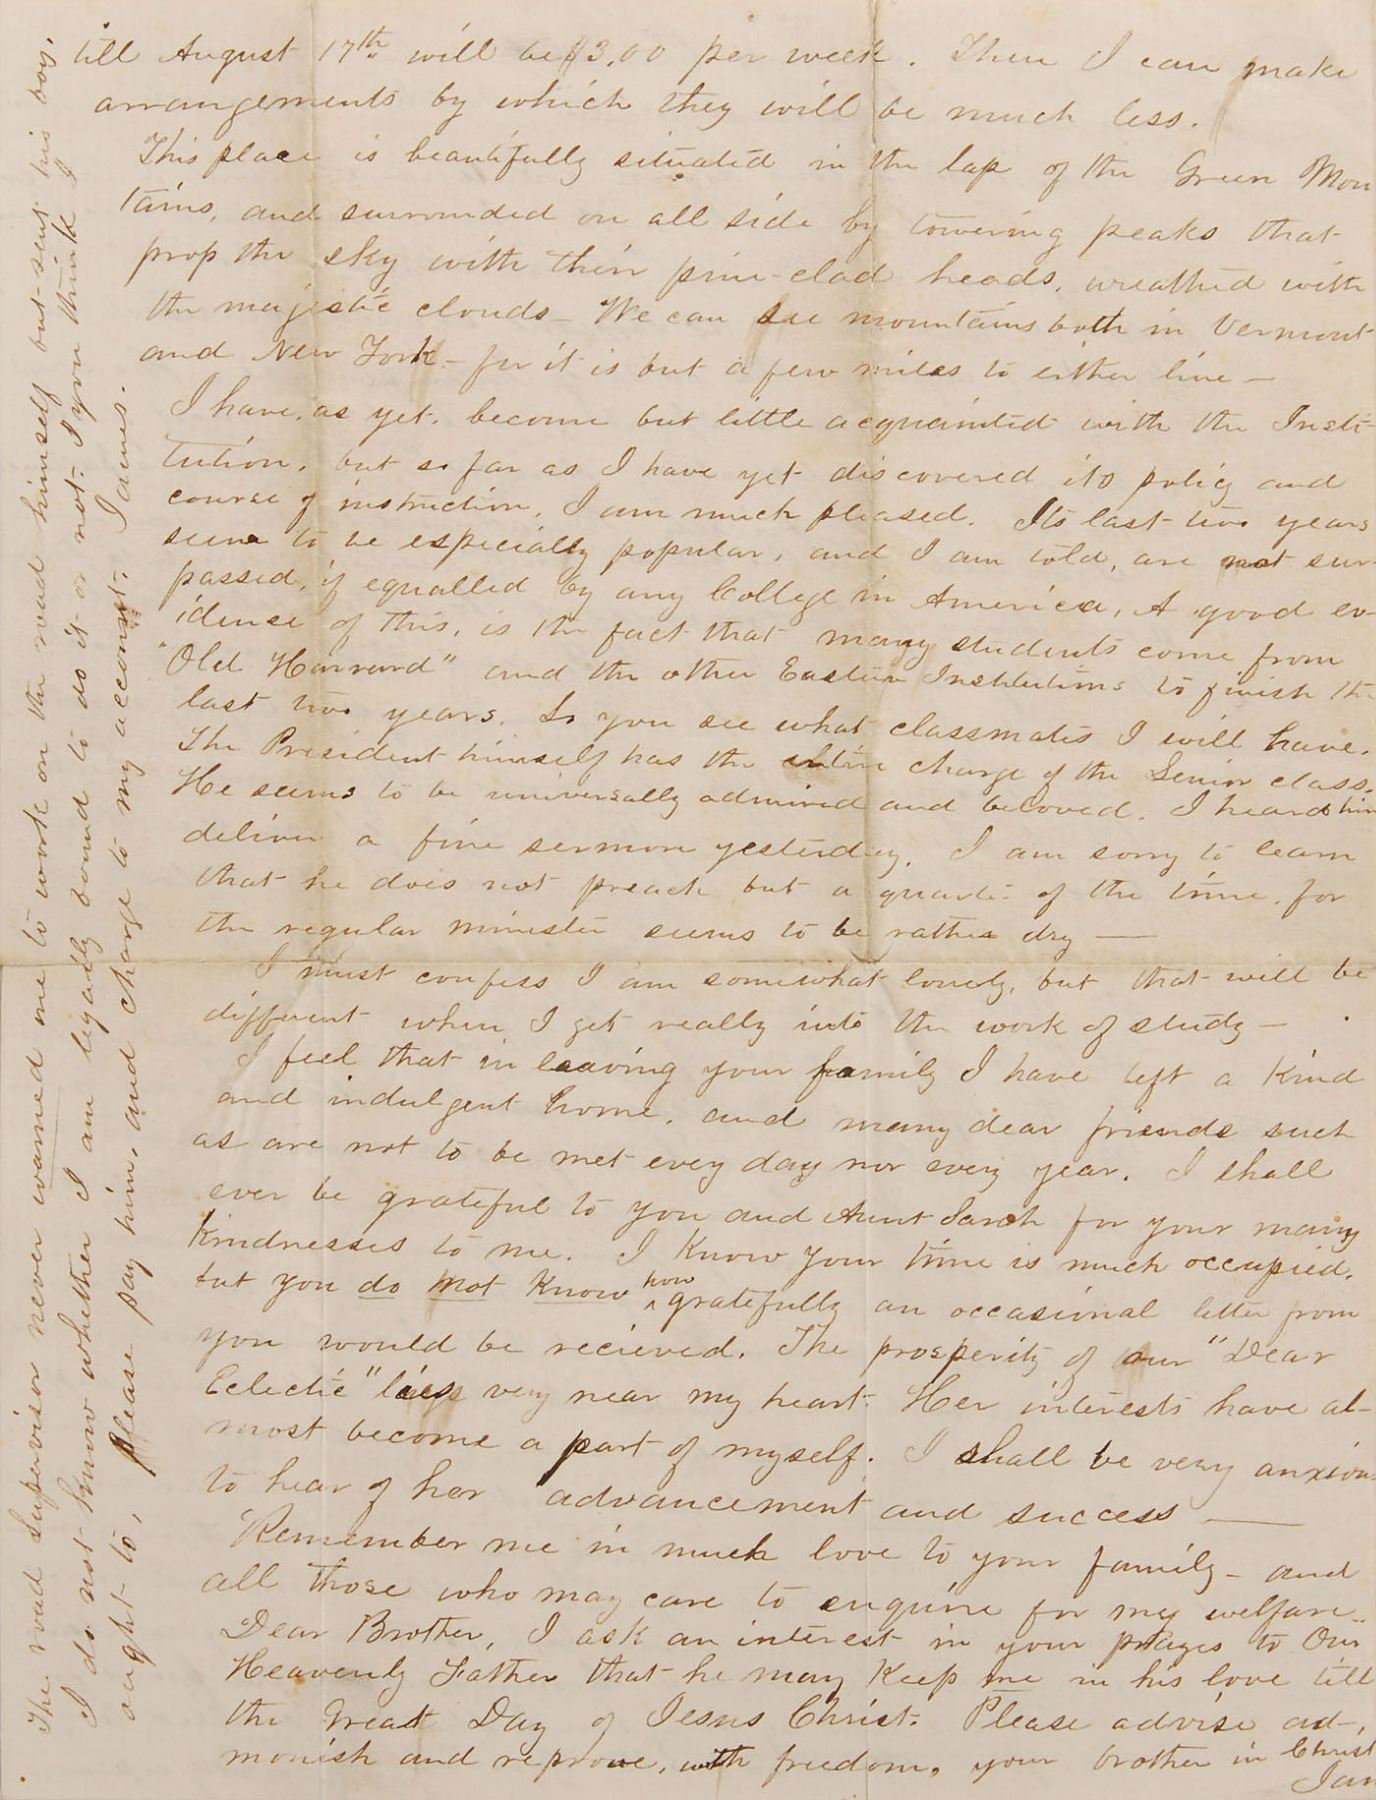 till August 17th will be $3.00 per week. Then I can make
arrangements by which they will be much less.
This place is beautifully situated in the lap of the Green Moun
tains, and surrounded on all side by towering peaks that
prop the sky with their pine-clad heads, wreathed with
the majestic clouds - We can see mountains both in Vermont
and New York - for it is but a few miles to either line -
I have, as yet, become but little acquainted with the Insti-
tution, but so far as I have yet discovered its policy and
course of instruction, I am much pleased. Its last two years
seem to be especially popular, and I am told, are not sur-
passed, if equalled by any College in America. A good ev-
idence of this, is the fact that many students come from
"Old Harvard" and the other Eastern Institutions to finish the
last two years. So you see what classmates I will have.
The President himself has the entire charge of the Senior class.
He seems to be universally admired and beloved. I heard him
deliver a fine sermon yesterday. I am sorry to learn
that he does not preach but a quarter of the time, for
the regular minister seems to be rather dry —
I must confess I am somewhat lonely, but that will be
different when I get really into the work of study -
I feel that in leaving your family I have left a kind
and indulgent home, and many dear friends such
as are not to be met every day nor every year. I shall
ever be grateful to you and Aunt Sarah for your many
kindnesses to me. I know your time is much occupied,
but you do not know how gratefully an occasional letter from
you would be recieved. The prosperity of our "Dear
Eclectic" lies very near my heart. Her interests have al-
most become a part of myself. I shall be very anxious
to hear of her advancement and success —
Remember me in much love to your family - and
all those who may care to enquire for my welfare..
Dear Brother, I ask an interest in your prayes to Our
Heavenly Father that he may keep me in his love till
the Great Day of Jesus Christ. Please advise ad-,
monish and reprove, with freedom, your brother in Christ
Jam
The road supervisor never warned me to work on the road himself but sent his boy.
I do not know whether I am legally bound to do it or not. If you think I
ought to, please pay him, and charge to my account. James.